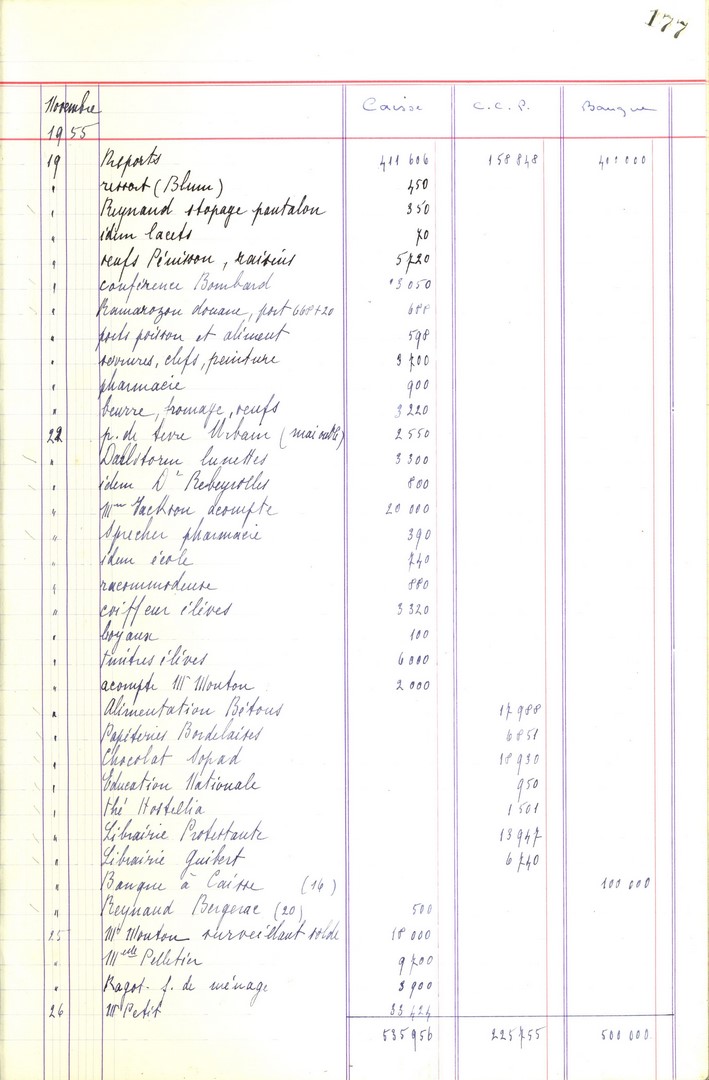 177
Novembre Caisse C.C.P. Banque
1955
19 Reports 411 606 158 848 400 000
" ressort (Blum) 450
" Reynaud stopage pantalon 350
" idem lacets 70
" oeufs Pénisson, raisins 5720
" conférence Bombard 3 050
" Ramarozon douane, port 668+20 688
" ports poisson et aliment 598
" serrures, clefs, peinture 3 700
" pharmacie 900
" beurre, fromage, oeufs 3 220
22 p. de terre Urbain 2 550
" Dallstorm lunettes 3 300
" idem Dr Rebeyrolles 800
" Mme Jackson acompte 20 000
" Sprecher pharmacie 390
" idem école 740
" racommodeuse 880
" coiffeur élèves 3 320
" boyaux 100
" timbres élèves 6 000
" acompte Mr Mouton 2 000
" Alimentation Bétous 17 988
" Papéteries Bordelaises 6 851
" Chocolat Sopad 18 930
" Education Nationale 950
" thé Hostellia 1 501
" Librairie Protestante 13 947
" Librairie Guibert 6 740
" Banque à Caisse (16) 100 000
" Reynaud Bergerac (20) 500
25 Mr Mouton surveillant solde 18 000
" Melle Pelletier 9 700
" Ragot f. de ménage 3 900
26 Mr Petit 33 424
535 956 225 755 500 000